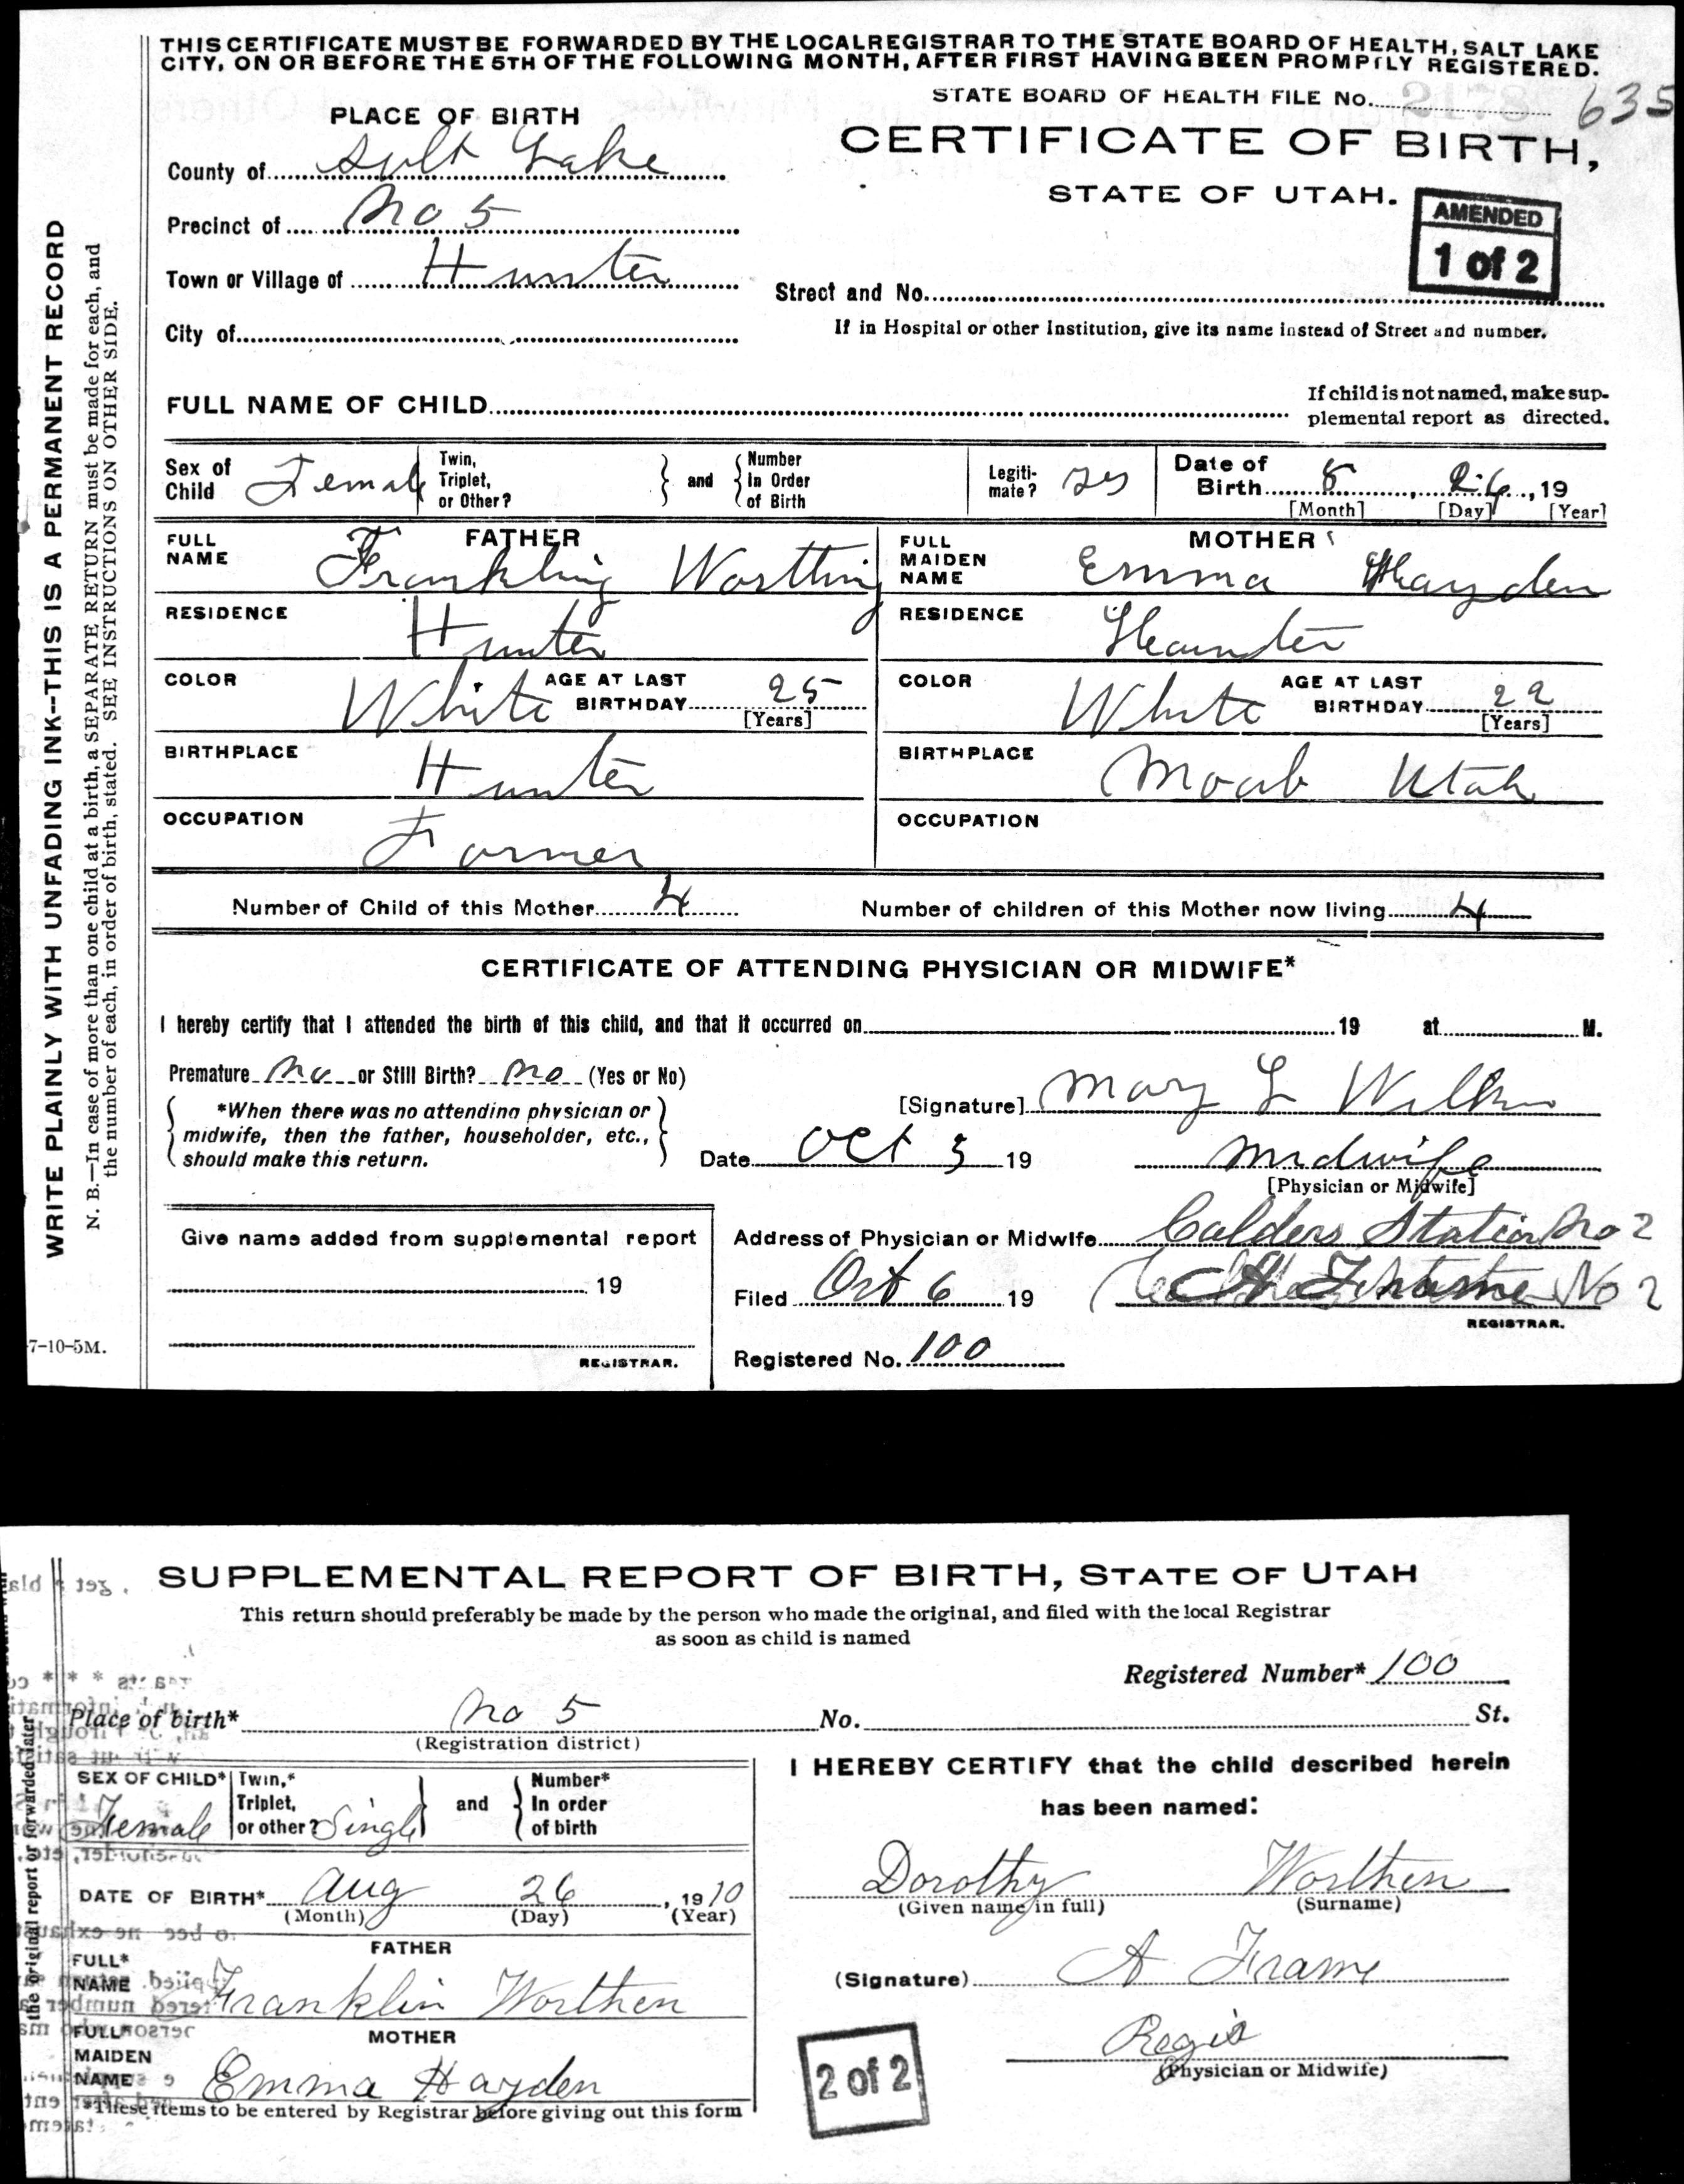 THIS CERTIFICATE MUST BE FORWARDED BY THE LOCAL REGISTRAR TO THE STATE BOARD OF HEALTH, SALT LAKE
CITY, ON OR BEFORE THE 5TH OF THE FOLLOWING MONTH, AFTER FIRST HAVING BEEN PROMPTLY REGISTERED.
STATE BOARD OF HEALTH FILE No. 635
PLACE OF BIRTH
CERTIFICATE OF BIRTH,
County of Salt Lake
STATE OF UTAH.
AMENDED
1 of 2
Precinct of No 5
Town or Village of Hunter
Street and No.
City of
If in Hospital or other Institution, give its name instead of Street and number.
FULL NAME OF CHILD
If child is not named, make sup-
plemental report as directed.
Sex of Child Female
Twin, Triplet, or Other?
and
Number In Order of Birth
Legiti-mate? Yes
Date of Birth 8, 26, 19
[Month] [Day] [Year]
FATHER
FULL NAME Frankling Worthing
MOTHER
FULL MAIDEN NAME Emma Hayden
RESIDENCE Hunter
RESIDENCE Heunter
COLOR White AGE AT LAST BIRTHDAY 25 [Years]
COLOR White AGE AT LAST BIRTHDAY 22 [Years]
BIRTHPLACE Hunter
BIRTHPLACE Moab Utah
OCCUPATION Farmer
OCCUPATION
Number of Child of this Mother 4
Number of children of this Mother now living 4
CERTIFICATE OF ATTENDING PHYSICIAN OR MIDWIFE*
I hereby certify that I attended the birth of this child, and that it occurred on 19 at M.
Premature No or Still Birth? No (Yes or No)
*When there was no attending physician or
midwife, then the father, householder, etc.,
should make this return.
[Signature] Mary L
Date Oct 3 19
Midwife
[Physician or Midwife]
Give name added from supplemental report
19
REGISTRAR.
Address of Physician or Midwife Calders Station No 2
Filed Oct 6 19
A Frame No 2
REGISTRAR.
Registered No. 100
7-10-5M.
WRITE PLAINLY WITH UNFADING INK--THIS IS A PERMANENT RECORD
N. B.—In case of more than one child at a birth, a SEPARATE RETURN must be made for each, and
the number of each, in order of birth, stated. SEE INSTRUCTIONS ON OTHER SIDE.
SUPPLEMENTAL REPORT OF BIRTH, STATE OF UTAH
This return should preferably be made by the person who made the original, and filed with the local Registrar
as soon as child is named
Registered Number* 100
Place of birth* No 5 No. St.
(Registration district)
SEX OF CHILD* Female
Twin,* Triplet, or other? Single
and
Number* In order of birth
DATE OF BIRTH* Aug 26, 1910
(Month) (Day) (Year)
FATHER
FULL* NAME Franklin Worthen
MOTHER
FULL MAIDEN NAME Emma Hayden
*These items to be entered by Registrar before giving out this form
the original report or forwarded later
I HEREBY CERTIFY that the child described herein
has been named:
Dorothy Worthen
(Given name in full) (Surname)
(Signature) A Frame
Regis
(Physician or Midwife)
2 of 2